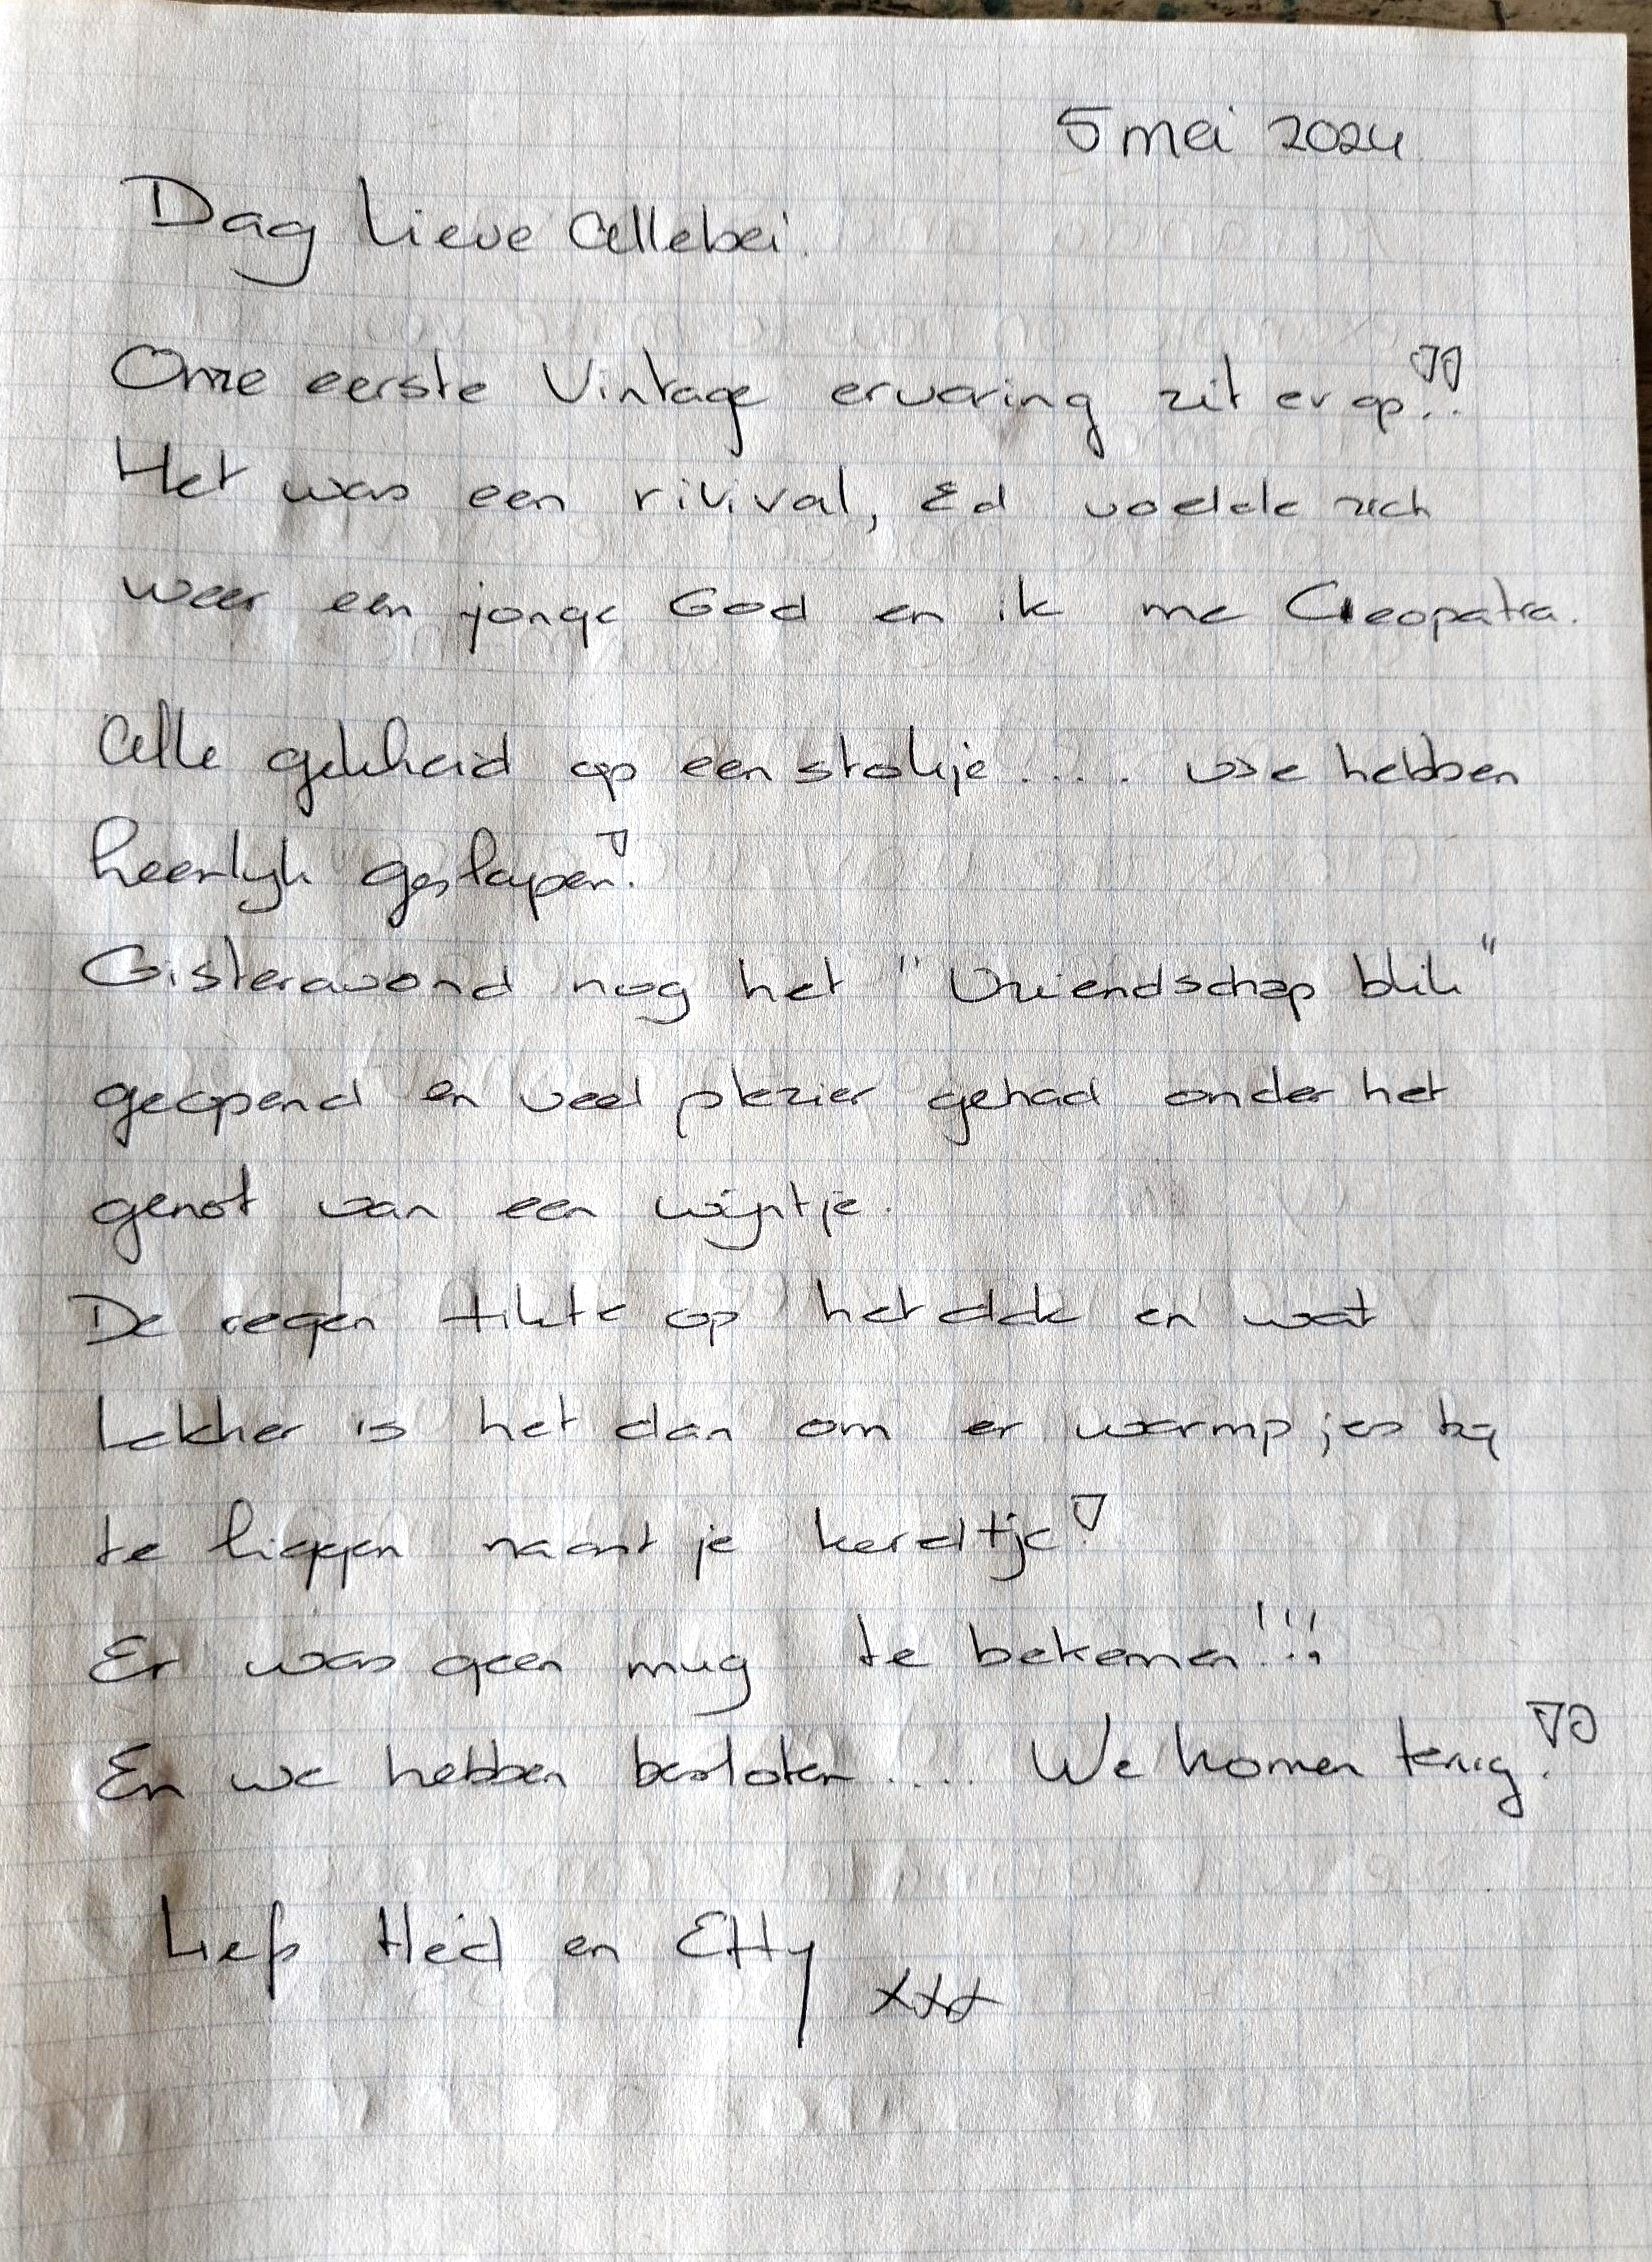 5 mei 2024
Dag lieve Allebei.
Onze eerste Vintage ervaring zit er op!!
Het was een rivival, Ed voelde zich
weer een jonge God en ik me Cleopatra.
Alle gekheid op een stokje.... we hebben
heerlijk geslapen!
Gisteravond nog het "Vriendschap blik"
geopend en veel plezier gehad onder het
genot van een wijntje.
De regen tikte op het dak en wat
lekker is het dan om er warmpjes bij
te liggen naast je kereltje!
Er was geen mug te bekennen!!!
En we hebben besloten.... We komen terug!!
Liefs Hed en Etty xxx